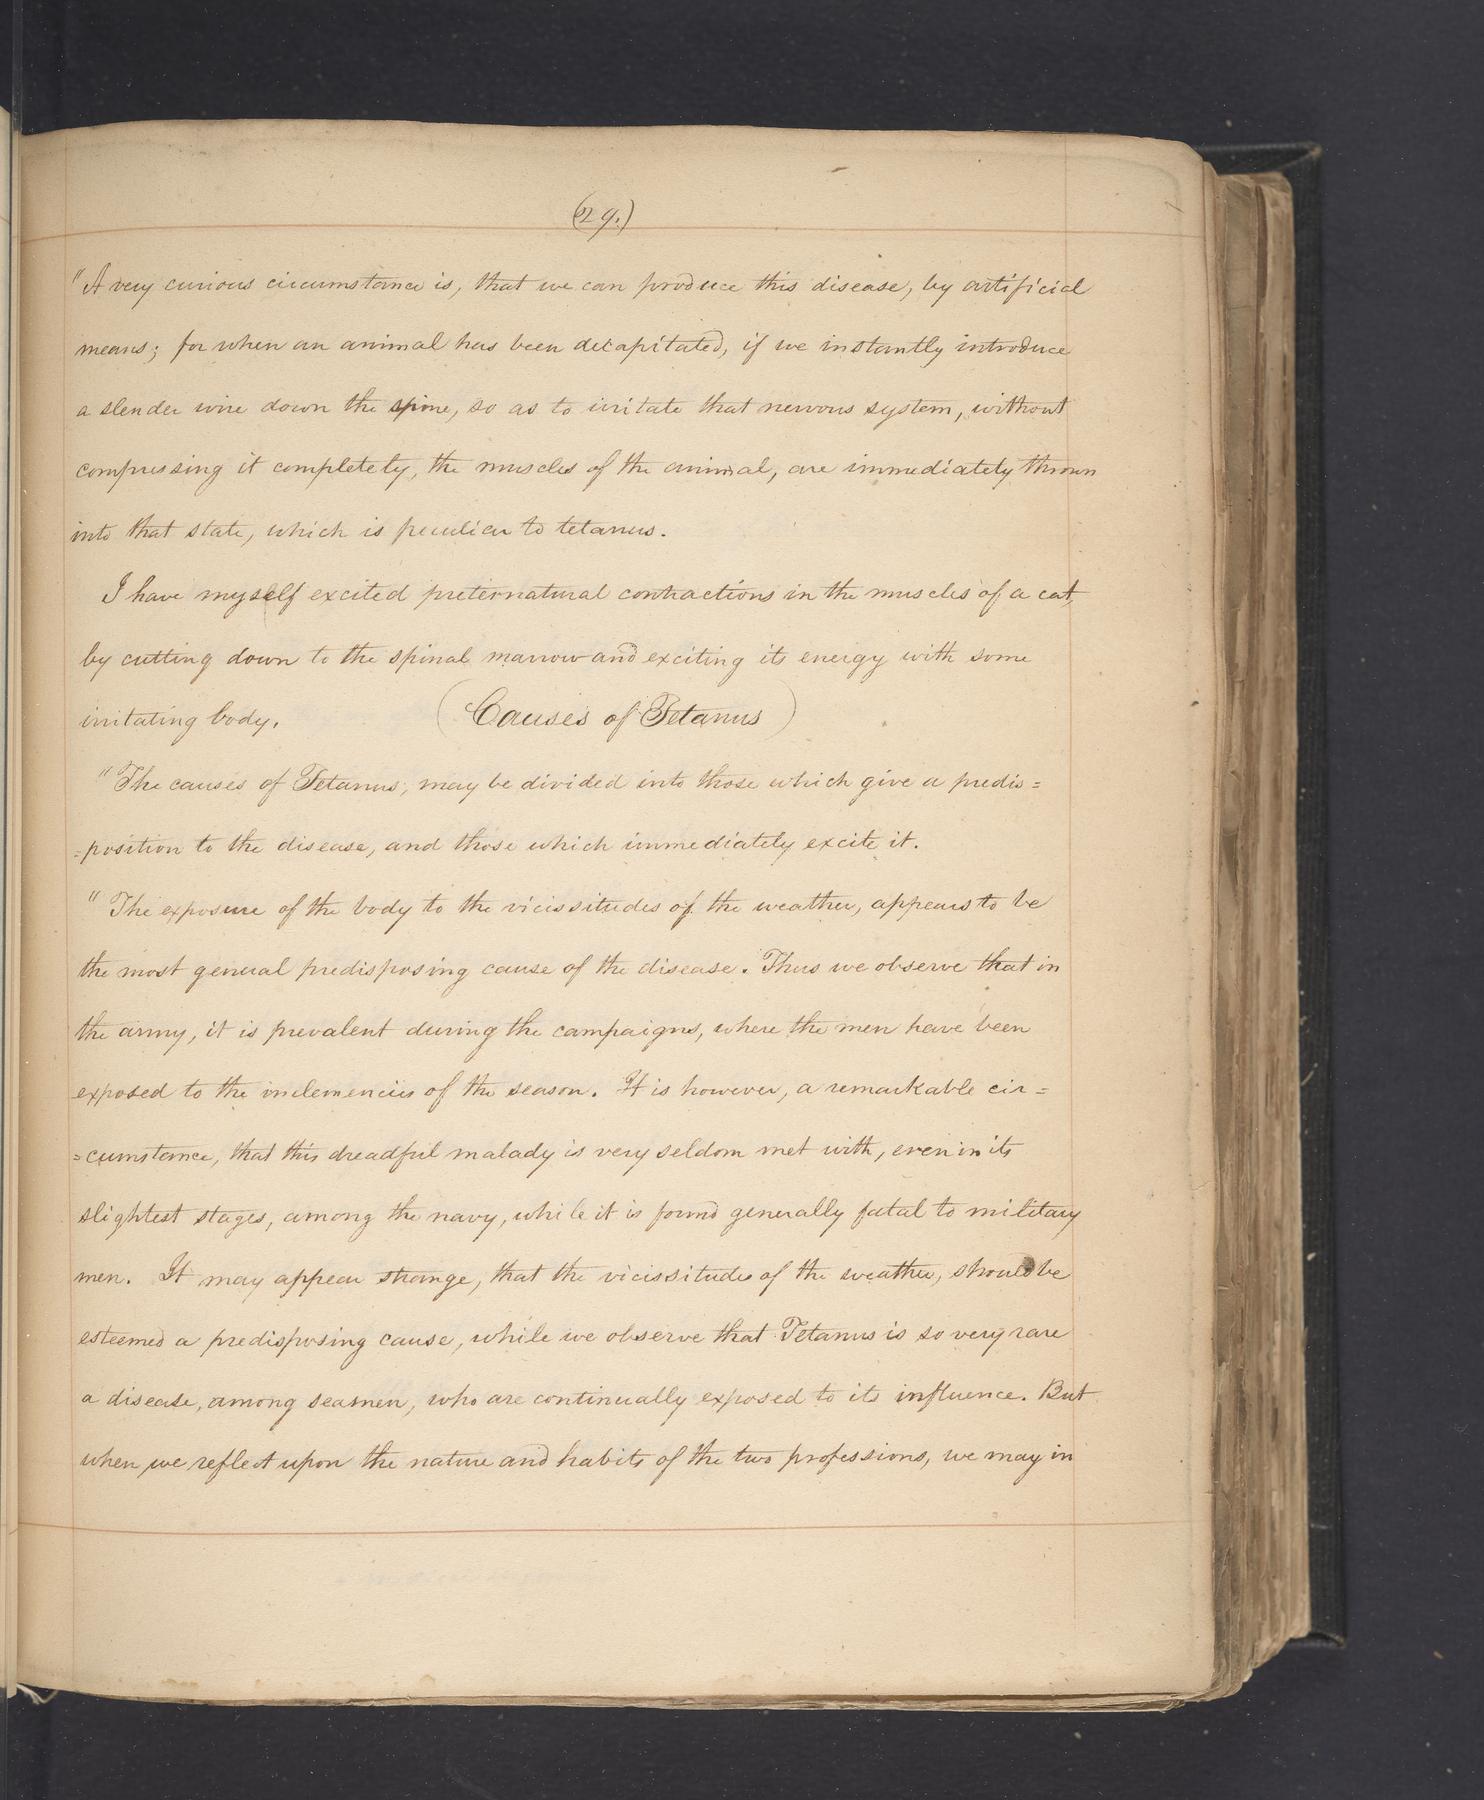 (29.)
"A very curious circumstance is, that we can produce this disease, by artificial
means; for when an animal has been decapitated, if we instantly introduce
a slender wire down the spine, so as to irritate that nervous system, without
compressing it completely, the muscles of the animal, are immediately thrown
into that state, which is peculiar to tetanus.
I have myself excited preternatural contractions in the muscles of a cat,
by cutting down to the spinal marrow and exciting its energy with some
irritating body. (Causes of Tetanus)
"The causes of Tetanus, may be divided into those which give a predis=
=position to the disease, and those which immediately excite it.
"The exposure of the body to the vicissitudes of the weather, appears to be
the most general predisposing cause of the disease. Thus we observe that in
the army, it is prevalent during the campaigns, where the men have been
exposed to the inclemencies of the season. It is however, a remarkable cir=
=cumstance, that this dreadful malady is very seldom met with, even in its
slightest stages, among the navy, while it is found generally fatal to military
men. It may appear strange, that the vicissitudes of the weather, should be
esteemed a predisposing cause, while we observe that Tetanus is so very rare
a disease, among seamen, who are continually exposed to its influence. But
when we reflect upon the nature and habits of the two professions, we may in